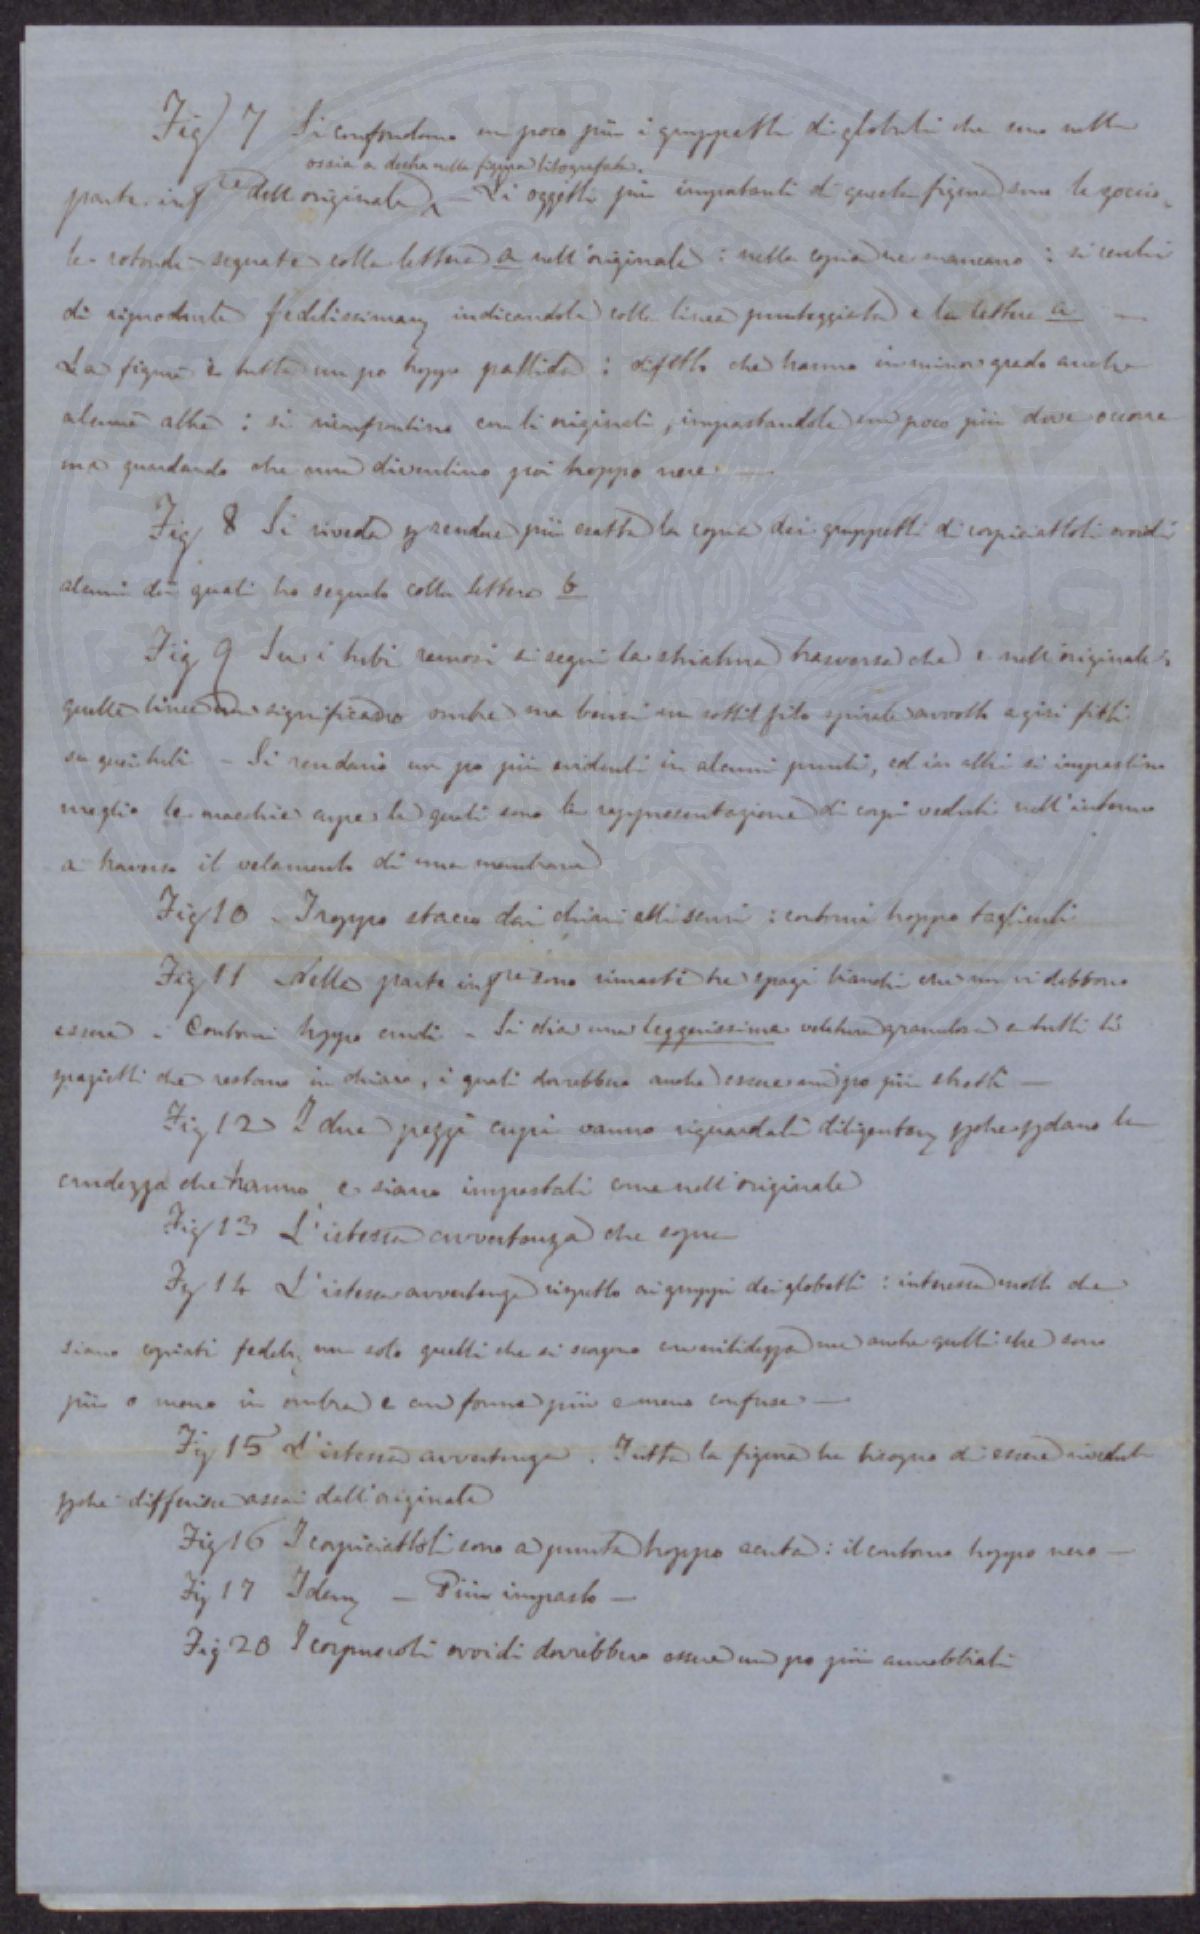 Fig 7 Si confondano un poco più i gruppetti di globuli che sono nella
ossia a destra nella figura litografata.
parte inf.re dell'originale — Li oggetti più importanti di questa figura sono le goccio-
le rotonde segnate colla lettera a nell'originale : nella copia ne mancano : si cerchi
di riprodurle fedelissimam indicandole colla linea punteggiata e la lettera a —
La figura è tutta un po troppo pallida : difetto che hanno in minor grado anche
alcune altre : si riconfrontino con li originali, impastandole un poco più dove occorre
ma guardando che non diventino poi troppo nere —
Fig 8 Si riveda p rendere più esatta la copia dei gruppetti di corpiciattoli ovoidi
alcuni dei quali ho segnato colla lettera b
Fig 9 Su i tubi ramosi si segni la striatura trasversa che è nell'originale :
quelle linee non significano ombre ma bensì un sottil filo spirale avvolto a giri fitti
su quei tubi — Si rendano un po più evidenti in alcuni punti, ed in altri si impastino
meglio le macchie cupe le quali sono la rappresentazione di corpi veduti nell'interno
a traverso il velamento di una membrana
Fig 10 - Troppo stacco dai chiari alli scuri : contorni troppo taglienti
Fig 11 Nella parte inf.re sono rimasti tre spazi bianchi che non vi debbono
essere - Contorni troppo crudi - Si dia una leggerissima velatura granulosa a tutti li
spazietti che restano in chiaro, i quali dovrebbero anche essere un po più stretti —
Fig 12 I due pezzi cupi vanno riguardati diligentem pche pdano la
crudezza che hanno e siano impastati come nell'originale
Fig 13 L'istessa avvertenza che sopra
Fig 14 L'istessa avvertenza rispetto ai gruppi dei globetti : interessa molto che
siano copiati fedelm non solo quelli che si scorgono con nitidezza ma anche quelli che sono
più o meno in ombra e con forma più o meno confusa —
Fig 15 L'istessa avvertenza . Tutta la figura ha bisogno di essere riveduta
pche differisce assai dall'originale
Fig 16 I corpiciattoli sono a punta troppo acuta : il contorno troppo nero —
Fig 17 Idem — Più impasto —
Fig 20 I corpuscoli ovoidi dovrebbero essere un po più annebbiati